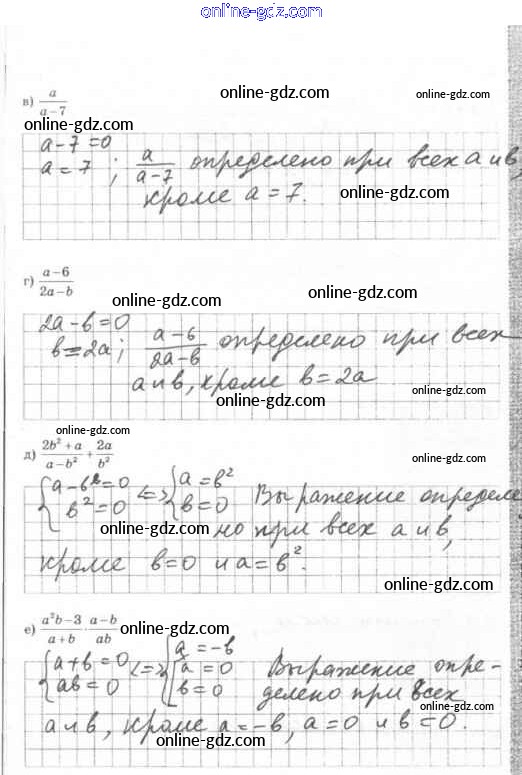 online-gdz.com
в) a/(a−7)
online-gdz.com
online-gdz.com
online-gdz.com
a−7=0
a=7; a/(a−7) определено при всех a и в,
кроме a=7.
online-gdz.com
г) (a−6)/(2a−b)
online-gdz.com
online-gdz.com
2a−в=0
в=2a; (a−6)/(2a−в) определено при всех
a и в, кроме в=2a
online-gdz.com
online-gdz.com
online-gdz.com
д) (2b²+a)/(a−b²) + 2a/b²
online-gdz.com
{a−в²=0 <=> {a=в² Выражение определе
{в²=0 {в=0 но при всех a и в,
online-gdz.com
кроме в=0 и a=в².
online-gdz.com
е) (a²b−3)/(a+b) · (a−b)/(ab)
online-gdz.com
{a+в=0 <=> {a=−в
{aв=0 {a=0 Выражение опре-
{в=0 делено при всех
online-gdz.com
a и в, кроме a=−в, a=0 и в=0.
online-gdz.com